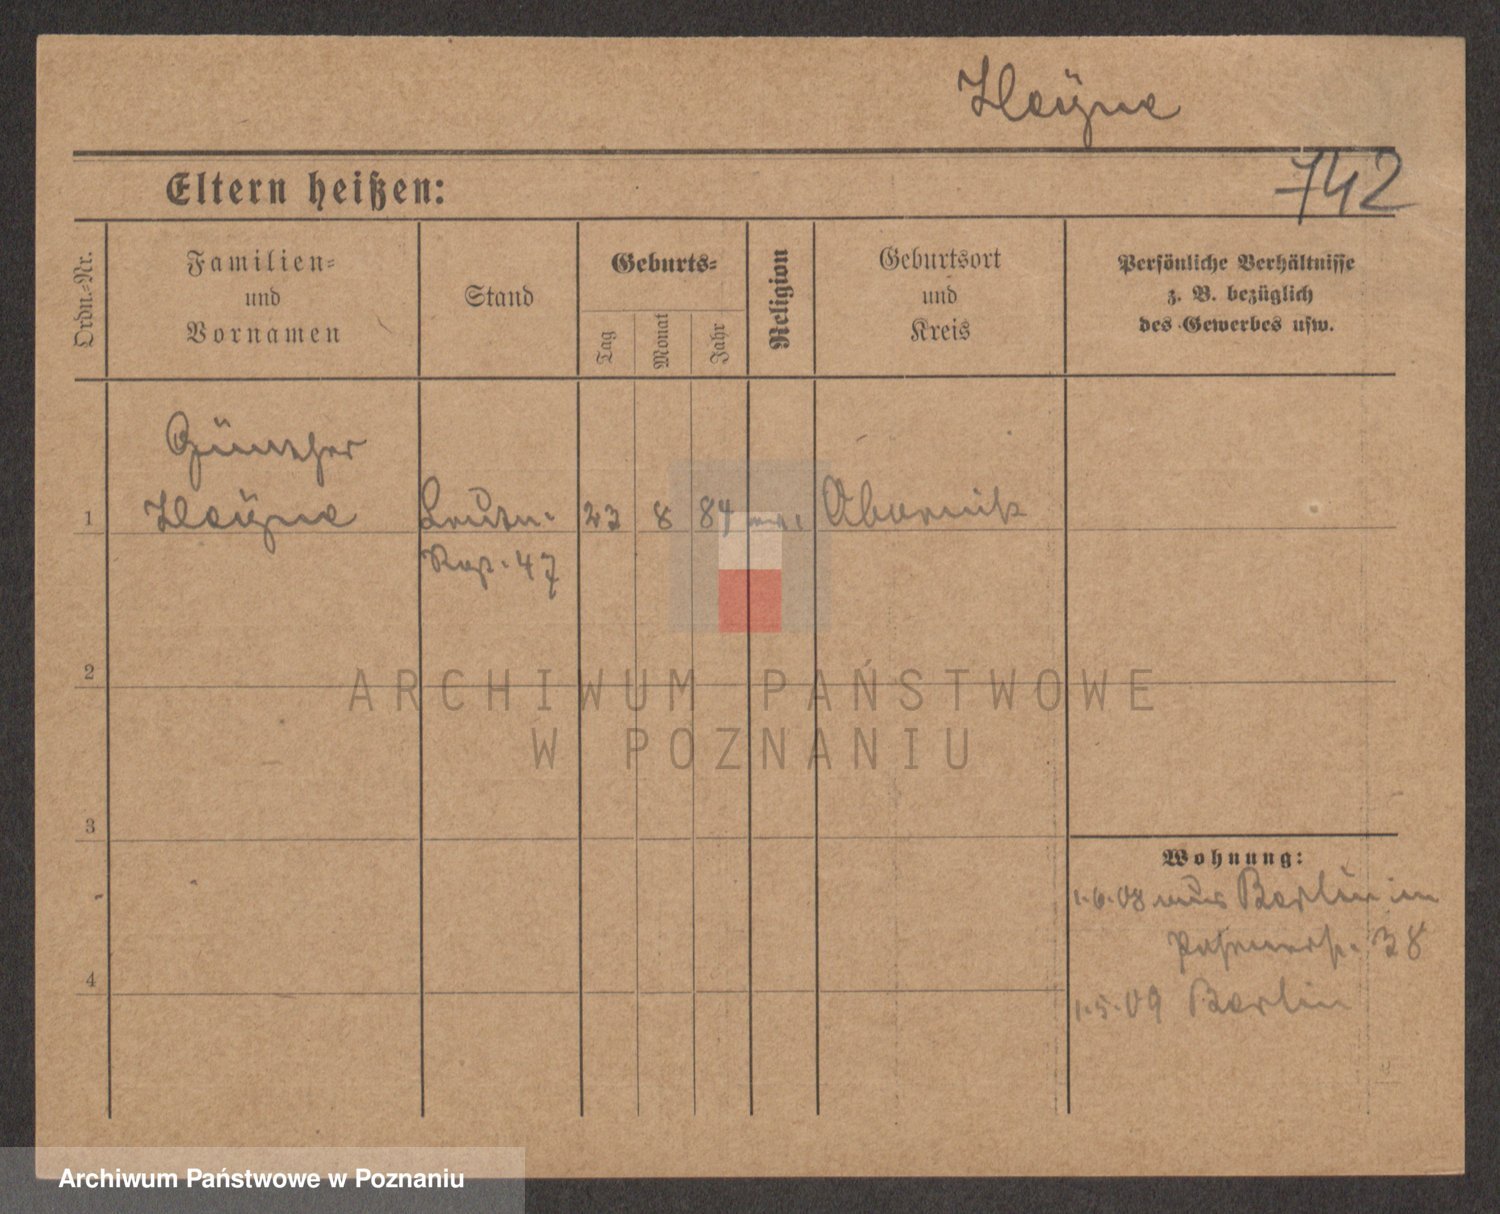 Heÿne
742
Eltern heißen:
Ordn.-Nr.
Familien-
und
Vornamen
Stand
Geburts-
Tag
Monat
Jahr
Religion
Geburtsort
und
Kreis
Persönliche Verhältnisse
z. B. bezüglich
des Gewerbes usw.
Günther
1 Heÿne 23 8 84 Obornik
47
2
ARCHIWUM PAŃSTWOWE
W POZNANIU
3
Wohnung:
1.6.08 aus Berlin in
38
4
1.5.09 Berlin
Archiwum Państwowe w Poznaniu